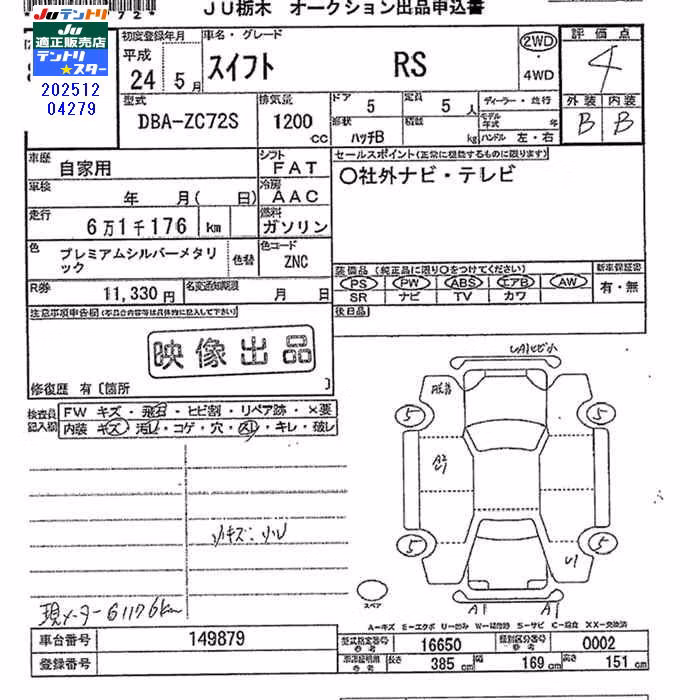 JU栃木 オークション出品申込書
JUテントリ
JU 適正販売店
テントリ
★スター
202512
04279
初度登録年月
平成
24 5月
車名・グレード
スイフト RS
2WD
・
4WD
評価点
4
外装 内装
B B
型式
DBA-ZC72S
排気量
1200 cc
ドア 5
定員 5人
形状 ハッチB
積載 kg
ディーラー・並行
モデル年式 年
ハンドル 左・右
車歴 自家用
シフト FAT
車検 年 月( 日)
冷房 AAC
走行 6万1千176 km
燃料 ガソリン
色 プレミアムシルバーメタリック
色替
色コード ZNC
R券 11,330円
名変通知期限 月 日
セールスポイント(正常に機能するものに限ります)
○社外ナビ・テレビ
装備品 (純正品に限り○をつけてください)
PS PW ABS エアB AW
SR ナビ TV カワ
新車保証書
有・無
後日品
注意事項申告欄(不具合内容等は具体的に記入して下さい)
映像出品
修復歴 有〔箇所 〕
検査員記入欄
FW キズ・飛石・ヒビ割・リペア跡・×要
内装 キズ・汚レ・コゲ・穴・スリ・キレ・破レ
小キズ:小U
現メーター61176km
U1
5 5
A2
U1
5 5
A1 A1
スペア
A-キズ E-エクボ U-凹み W-補修跡 S-サビ C-腐食 XX-交換済
車台番号 149879
登録番号
型式指定番号 参考 16650
類別区分番号 参考 0002
車検証明用 参考 長さ 385cm 幅 169cm 高さ 151cm